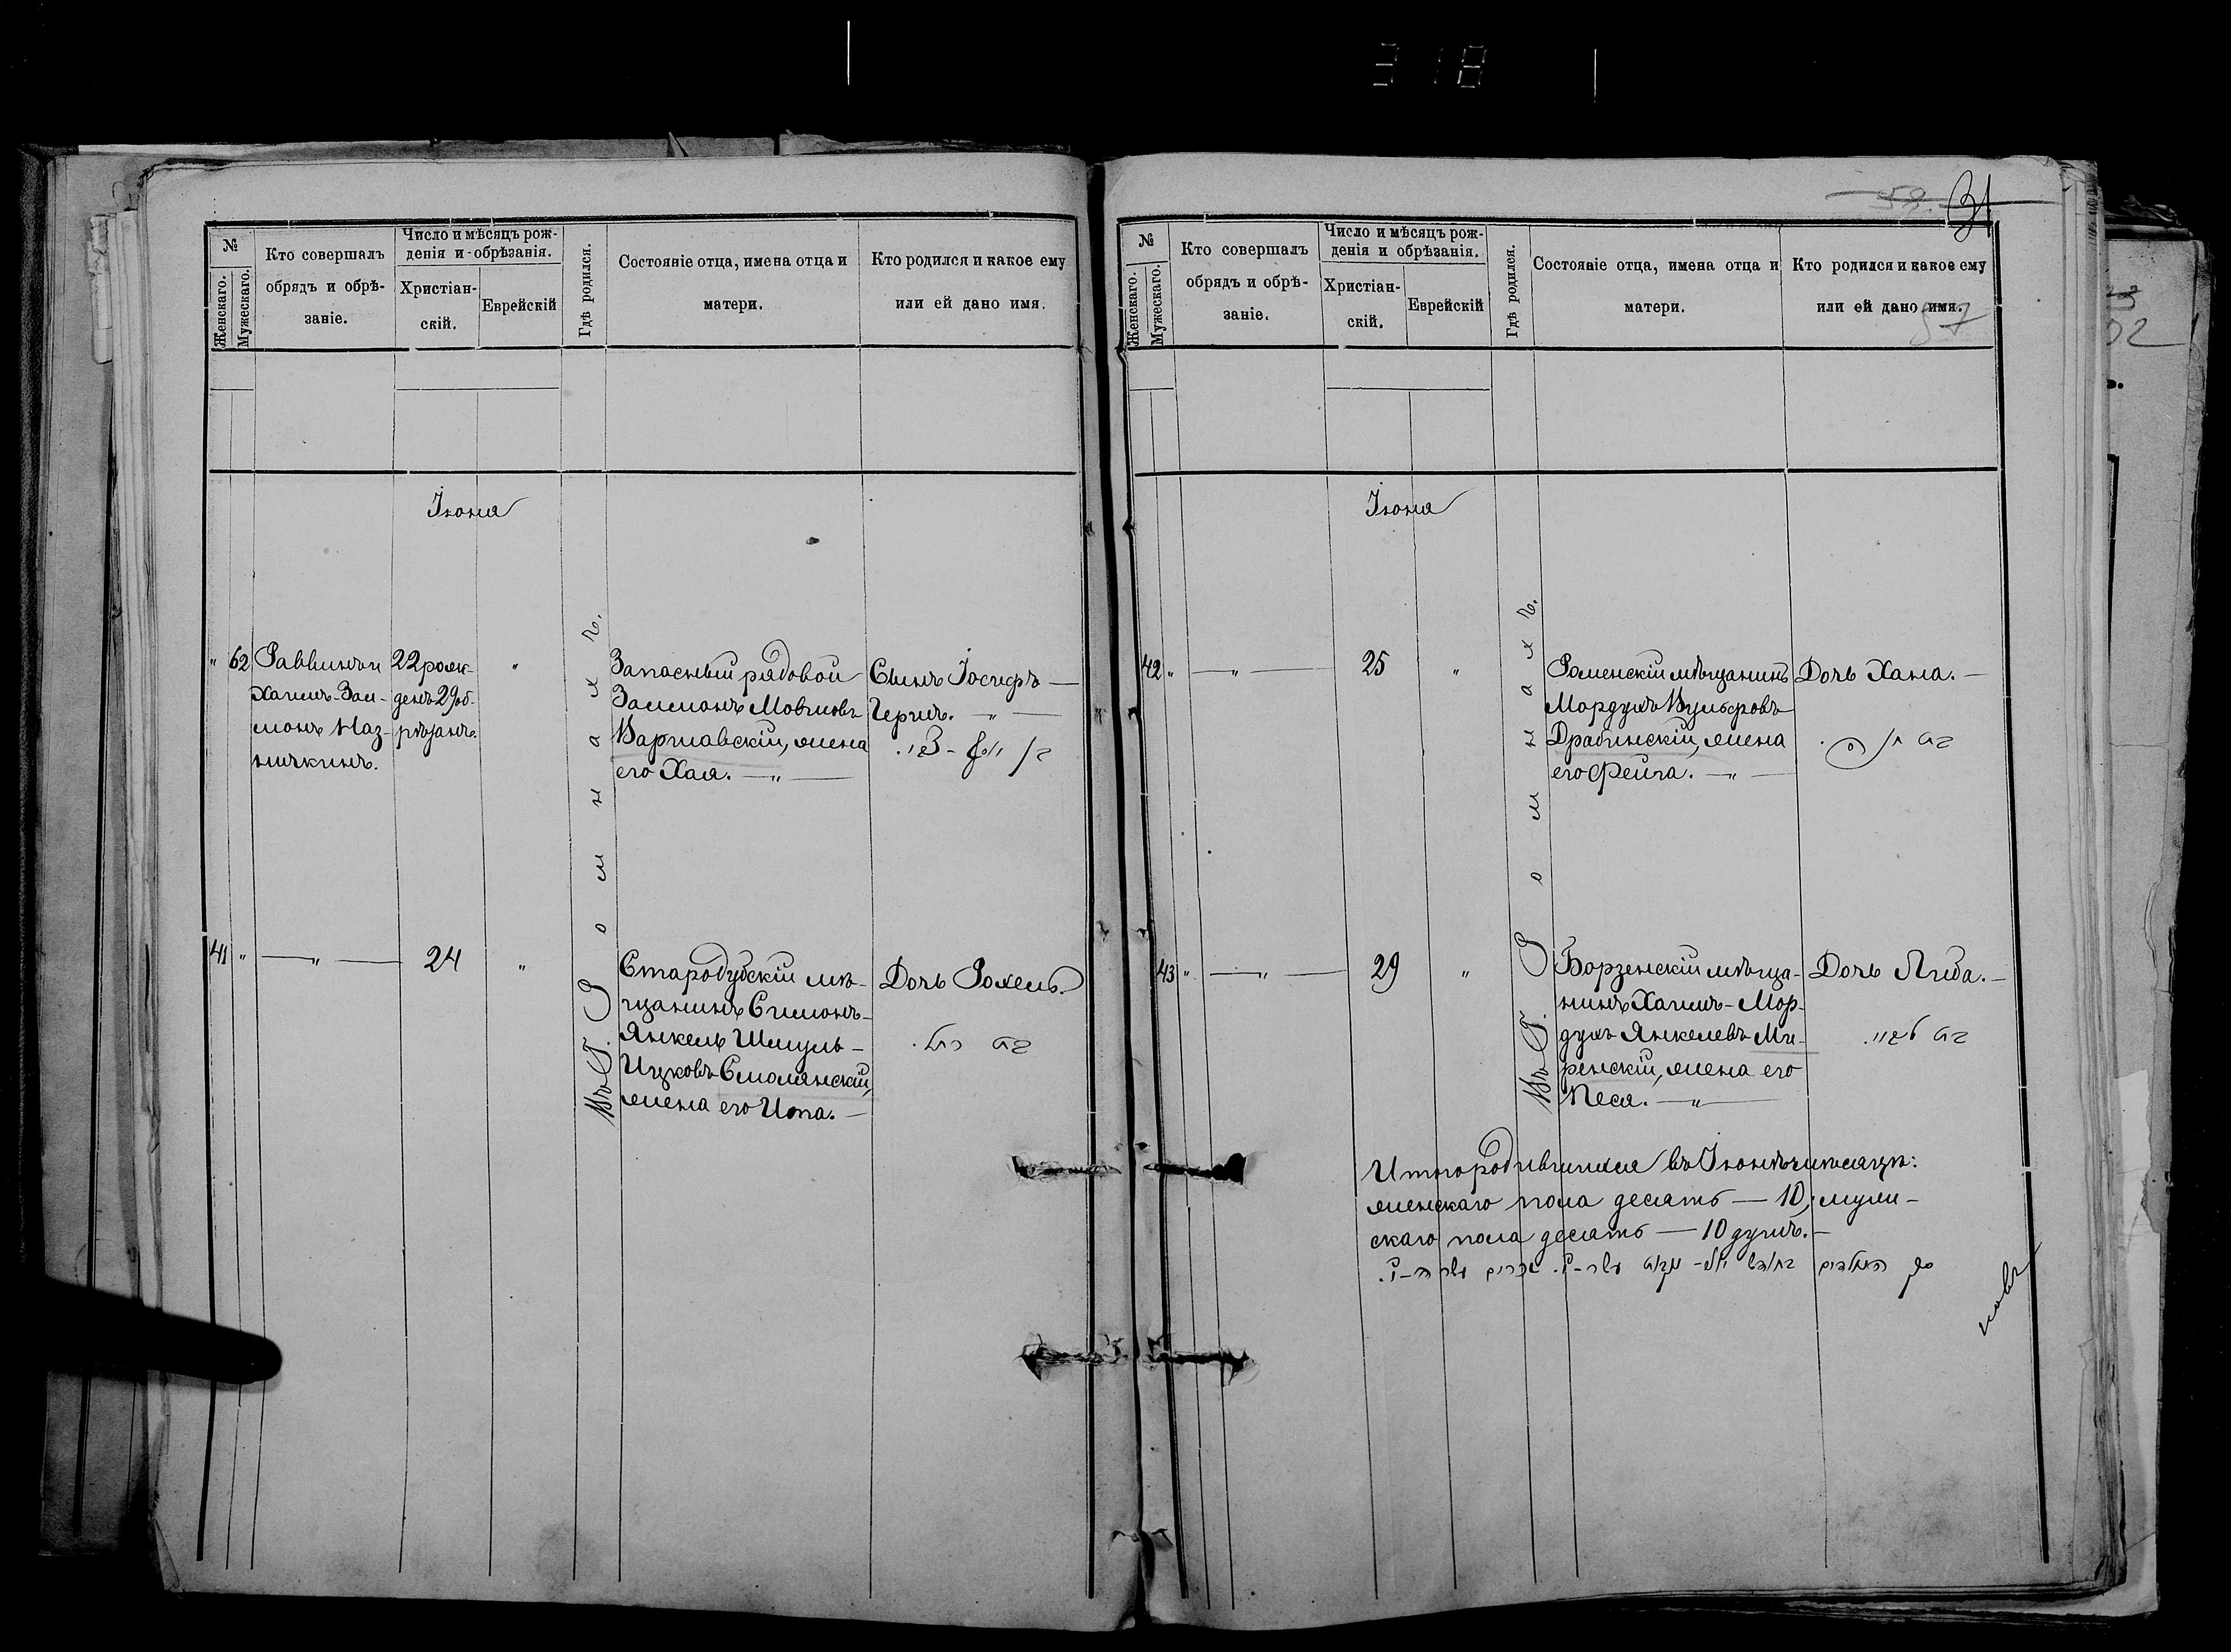 318
№
Женскаго.
Мужескаго.
Кто совершалъ
обрядъ и обрѣ-
заніе.
Число и мѣсяцъ рож-
денія и обрѣзанія.
Христіан-
скій.
Еврейскій
Гдѣ родился.
Состояніе отца, имена отца и
матери.
Кто родился и какое ему
или ей дано имя.
Іюня
" 62
Раввинъ
Хаимъ-Зал-
монъ
22 рож-
денъ 29 об-
рѣзанъ.
"
Въ г. Ромнахъ.
Запасный рядовой
Залмонъ Мовшовъ
Варшавскій, жена
его Хая. — " —
Сынъ Іосифъ —
Гершъ. — " —
41 "
— " —
24
"
Стародубскій мѣ-
щанинъ Симонъ-
Янкель Шмуль-
Ицковъ Смолянскій,
жена его Ита. —
Дочь Рохель.
בת רחל.
59.
31
57
№
Женскаго.
Мужескаго.
Кто совершалъ
обрядъ и обрѣ-
заніе.
Число и мѣсяцъ рож-
денія и обрѣзанія.
Христіан-
скій.
Еврейскій
Гдѣ родился.
Состояніе отца, имена отца и
матери.
Кто родился и какое ему
или ей дано имя.
Іюня
42 "
— " —
25
"
Въ г. Ромнахъ.
Роменскій мѣщанинъ
Мордухъ Вульфовъ
Драбинскій, жена
его Фейга. — " —
Дочь Хана. —
43 "
— " —
29
"
Борзенскій мѣща-
нинъ Хаимъ-Мор-
духъ Янкелевъ Ми-
ренскій, жена его
Песя. — " —
Дочь Либа. —
Итого родившихся въ Іюнѣ мѣсяцѣ:
женскаго пола десять — 10, муже-
скаго пола десять — 10 душъ. —